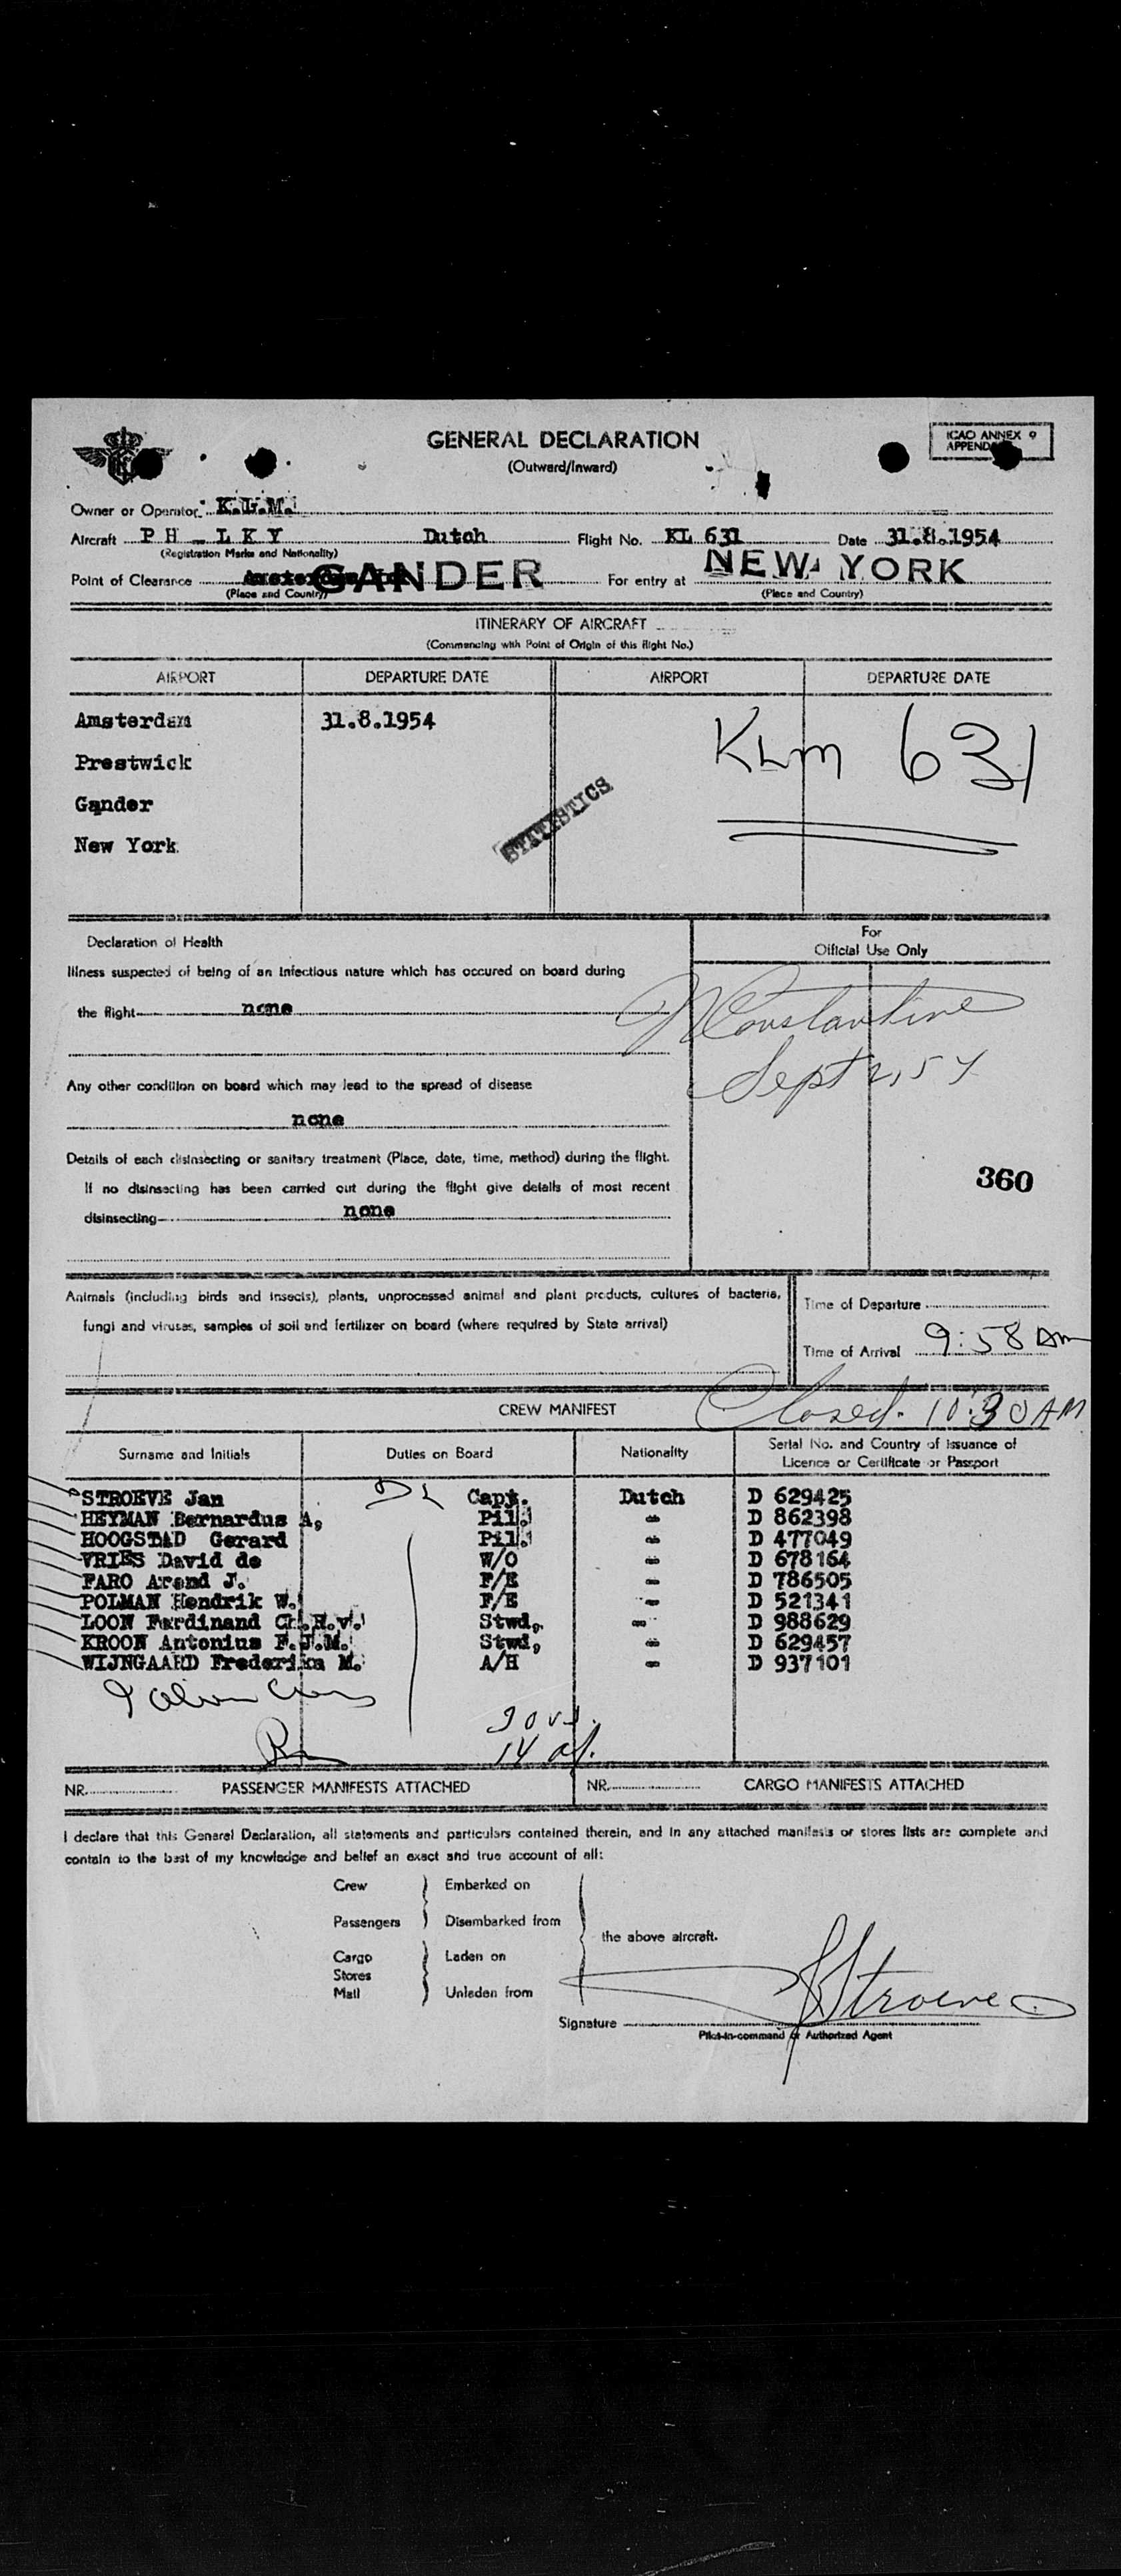 GENERAL DECLARATION
(Outward/Inward)
ICAO ANNEX 9
Owner or Operator: K.L.M.
Aircraft PH - LKY Dutch Flight No. KL 631 Date 31.8.1954
(Registration Marks and Nationality)
Point of Clearance GANDER For entry at NEW YORK
(Place and Country) (Place and Country)
ITINERARY OF AIRCRAFT
(Commencing with Point of Origin of this flight No.)
AIRPORT DEPARTURE DATE AIRPORT DEPARTURE DATE
Amsterdam 31.8.1954
KLM 631
Prestwick
Gander
STATISTICS
New York
For
Official Use Only
Declaration of Health
Illness suspected of being of an infectious nature which has occured on board during
the flight none
Constantine
Sept 2, 54
Any other condition on board which may lead to the spread of disease
none
Details of each disinsecting or sanitary treatment (Place, date, time, method) during the flight.
If no disinsecting has been carried out during the flight give details of most recent
disinsecting none
360
Animals (including birds and insects), plants, unprocessed animal and plant products, cultures of bacteria,
fungi and viruses, samples of soil and fertilizer on board (where required by State arrival)
Time of Departure
Time of Arrival 9:58 AM
Closed. 10:30 AM
CREW MANIFEST
Surname and Initials Duties on Board Nationality Serial No. and Country of Issuance of
Licence or Certificate or Passport
STROEVE Jan Capt. Dutch D 629425
HEYMAN Bernardus A, Pil. - D 862398
HOOGSTAD Gerard Pil. - D 477049
VRIES David de W/O - D 678164
FARO Arend J. F/E - D 786505
POLMAN Hendrik W. F/E - D 521341
LOON Ferdinand Ch.R.v. Stwd, - D 988629
KROON Antonius F.J.M. Stwd, - D 629457
WIJNGAARD Frederika M. A/H - D 937101
NR. PASSENGER MANIFESTS ATTACHED NR. CARGO MANIFESTS ATTACHED
I declare that this General Declaration, all statements and particulars contained therein, and in any attached manifests or stores lists are complete and
contain to the best of my knowledge and belief an exact and true account of all:
Crew Embarked on
Passengers Disembarked from
the above aircraft.
Cargo Laden on
Stores
Mail Unladen from
Signature JStroeve
Pilot-in-command or Authorized Agent